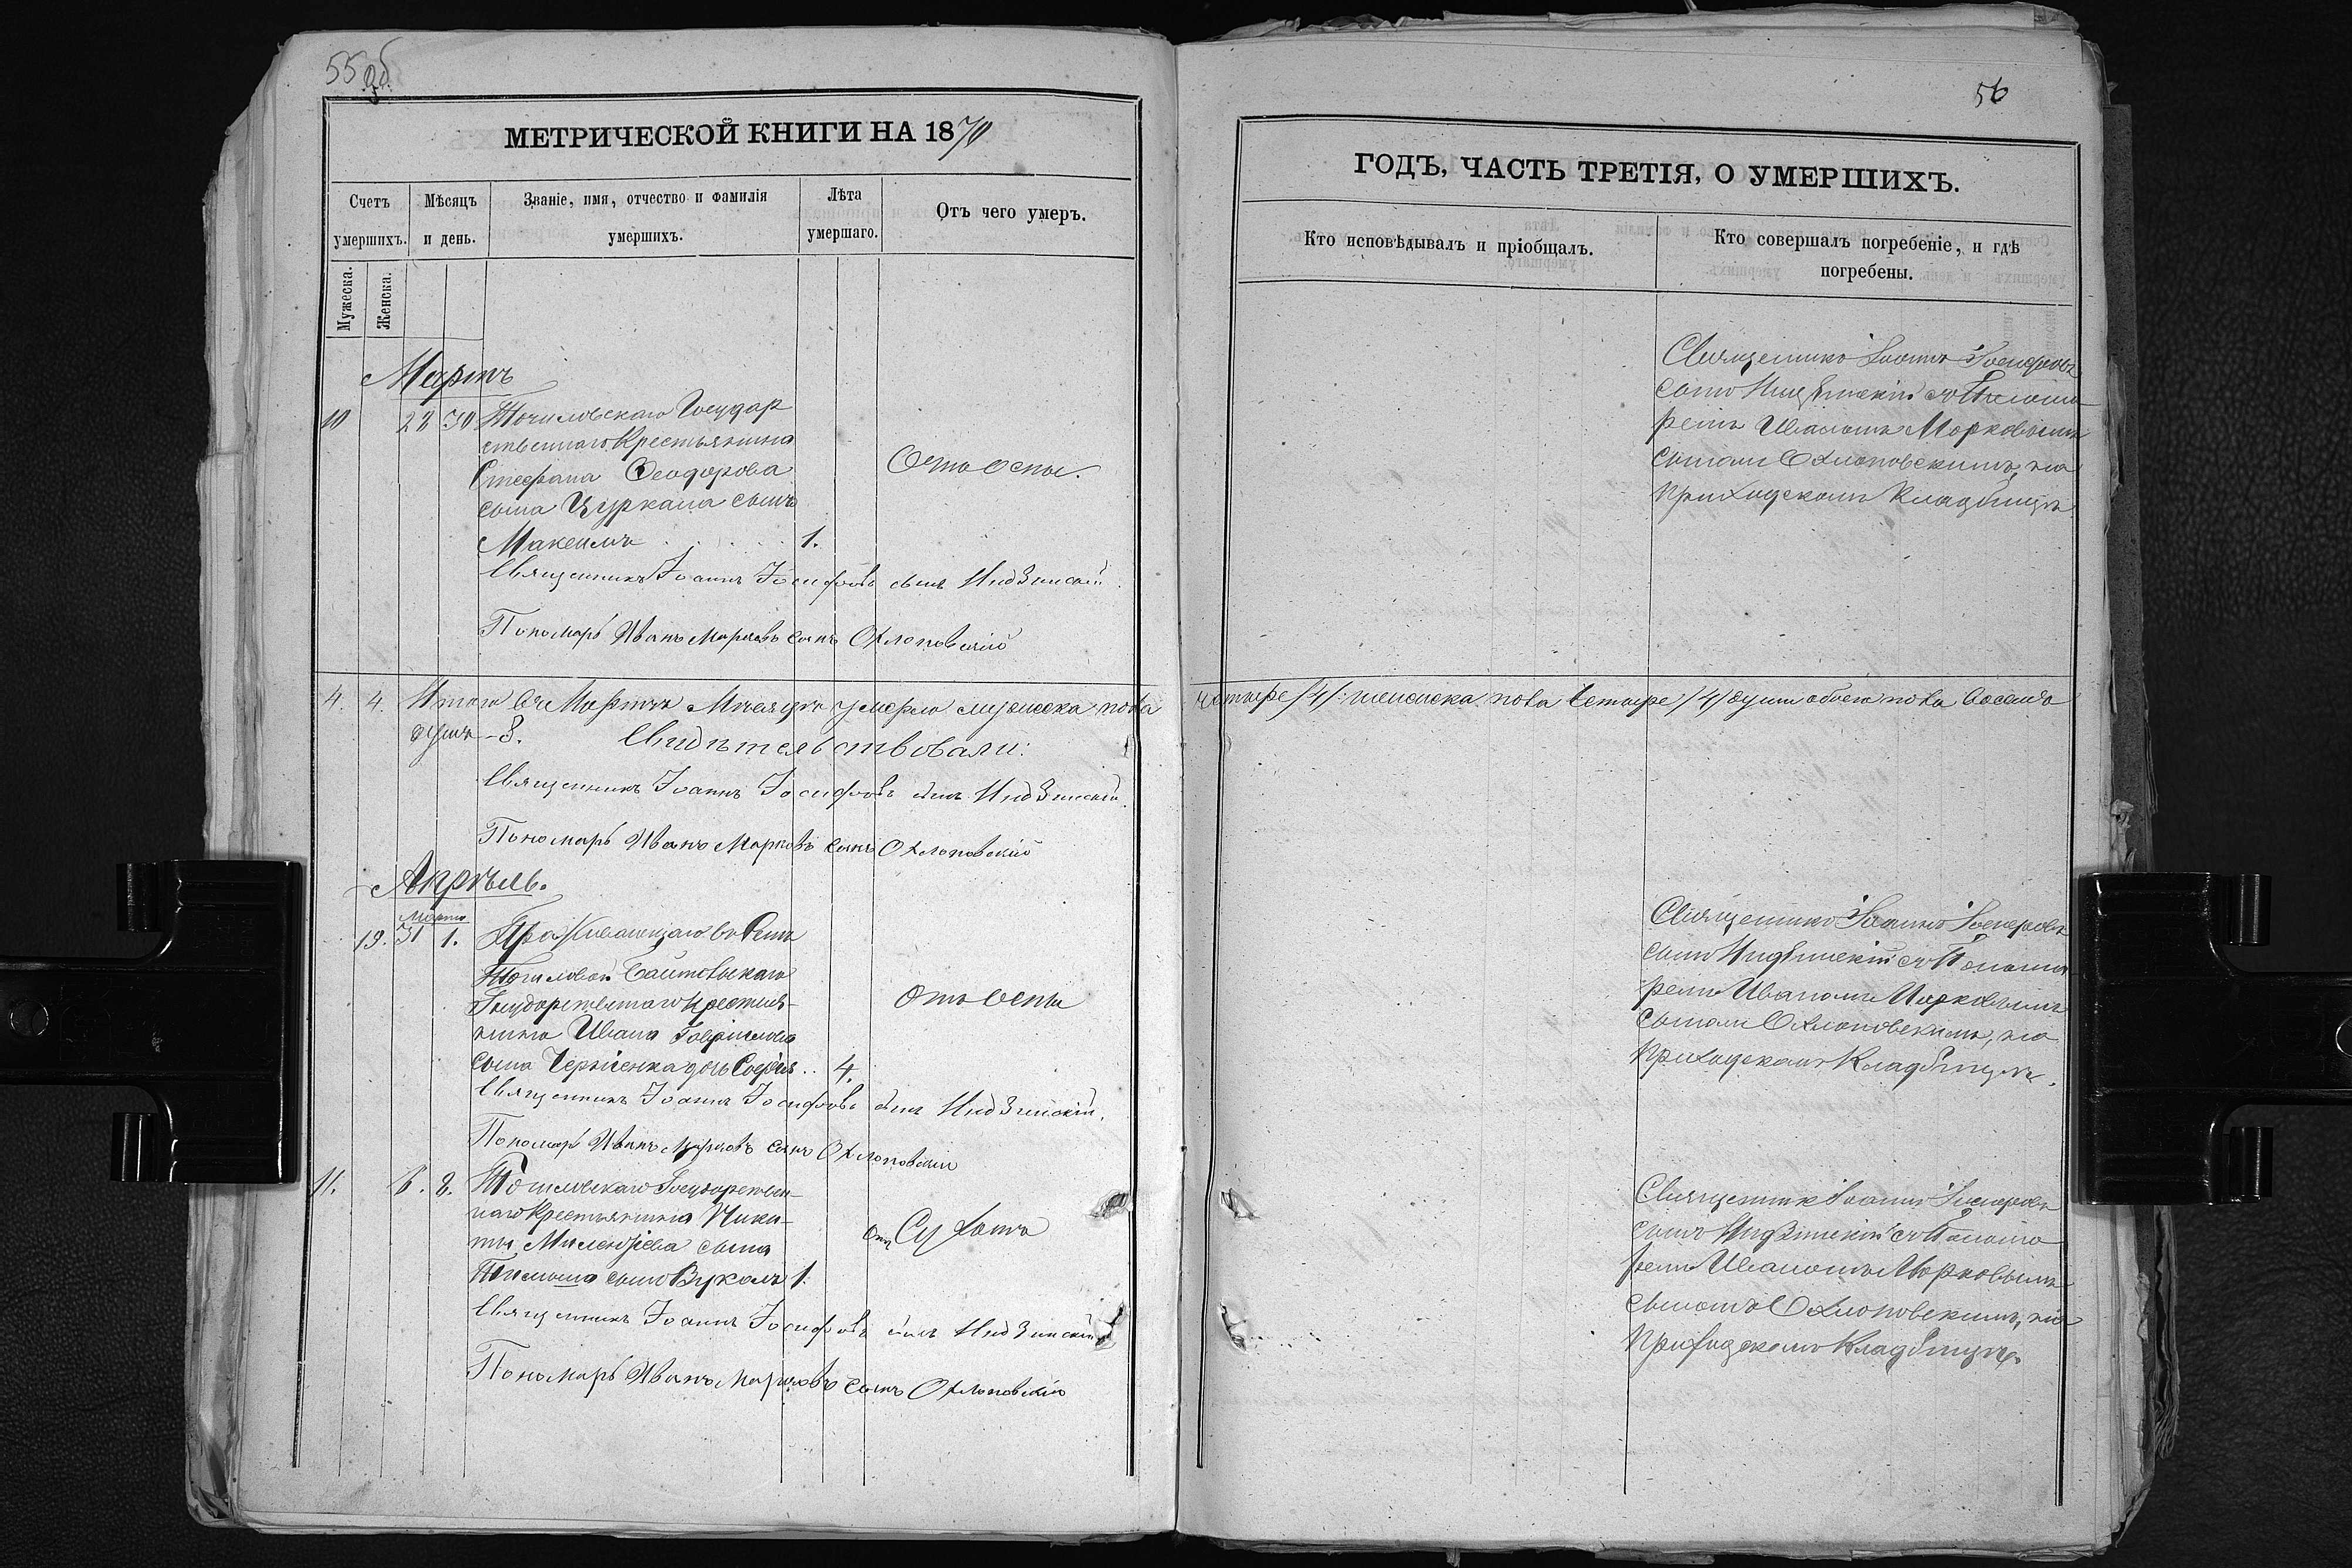 55 об
МЕТРИЧЕСКОЙ КНИГИ НА 1870
Счетъ умершихъ.
Мѣсяцъ и день.
Званіе, имя, отчество и фамилія умершихъ.
Лѣта умершаго.
Отъ чего умеръ.
Мужеска.
Женска.
Мартъ
10 28 30 Точиловскаго Государ
ственнаго Крестьянина
Стефана Ѳеодорова
сына Цуркана сынъ
Максимъ 1.
Отъ оспы.
Священникъ Іоаннъ Іосифовъ сынъ Индзинскій
Пономарь Иванъ Марковъ сынъ Охлоповскій
4. 4. Итого въ Мартѣ Мѣсяцѣ умерло мужеска пола
душъ – 8. Свидѣтельствовали:
Священникъ Іоаннъ Іосифовъ сынъ Индзинскій.
Пономарь Иванъ Марковъ сынъ Охлоповскій
Апрѣль.
Марта
19. 31 1. Проживающаго въ Селѣ
Точиловой
Государственаго Крестья-
нина Ивана Гаврилова
сына дочь Софія .. 4.
Отъ Оспы
Священникъ Іоаннъ Іосифовъ сынъ Индзинскій.
Пономарь Иванъ Марковъ сынъ Охлоповскій
11. 6. 8. Точиловскаго Государствен-
наго Крестьянина Ники-
ты Милентіева сына
сынъ Вуколъ 1.
Отъ Сухотъ
Священникъ Іоаннъ Іосифовъ сынъ Индзинскій
Пономарь Иванъ Марковъ сынъ Охлоповскій
56
ГОДЪ, ЧАСТЬ ТРЕТІЯ, О УМЕРШИХЪ.
Кто исповѣдывалъ и пріобщалъ.
Кто совершалъ погребеніе, и гдѣ погребены.
Священникъ Іоаннъ Іосифовъ
сынъ Индзинскій съ Понома
ремъ Иваномъ Марковымъ
сыномъ Охлоповскимъ, на
приходскомъ Кладбищѣ
четыре /4/: женска пола четыре /4/ души обоего пола восемь
Священникъ Іоаннъ Іосифовъ
сынъ Индзинскій съ Понома
ремъ Иваномъ Марковымъ
сыномъ Охлоповскимъ, на
приходскомъ Кладбищѣ.
Священникъ Іоаннъ Іосифовъ
сынъ Индзинскій съ Понома
ремъ Иваномъ Марковымъ
сыномъ Охлоповскимъ, на
приходскомъ Кладбищѣ.